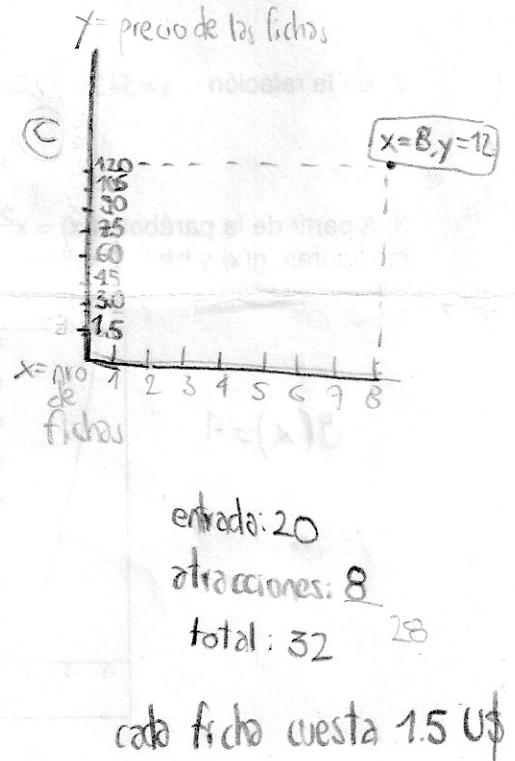 y= precio de las fichas
C
x=8, y=12
120
105
90
75
60
45
30
1.5
x= nro de fichas
1 2 3 4 5 6 7 8
entrada: 20
atracciones: 8
total: 32 28
cada ficha cuesta 1.5 U$